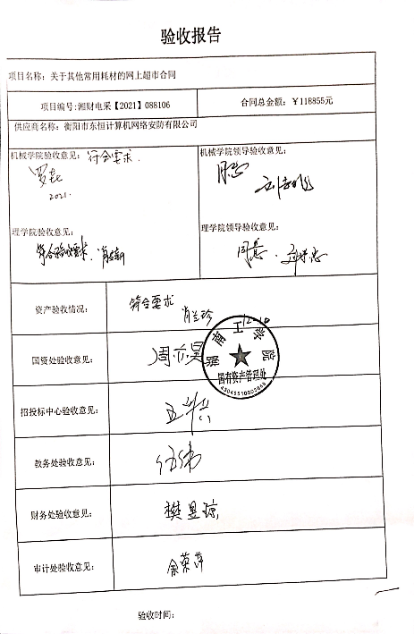 验收报告
项目名称：关于其他常用耗材的网上超市合同
项目编号:湘财电采【2021】088106
合同总金额：￥118855元
供应商名称：衡阳市东恒计算机网络安防有限公司
机械学院验收意见：符合要求.
2021.
机械学院领导验收意见：
同意
理学院验收意见：
符合验收要求
理学院领导验收意见：
同意.
资产验收情况：
符合要求
肖兰珍
国资处验收意见：
湖南工学院
国有资产管理处
招投标中心验收意见：
教务处验收意见：
伍伟
财务处验收意见：
樊昱琼
审计处验收意见：
验收时间：